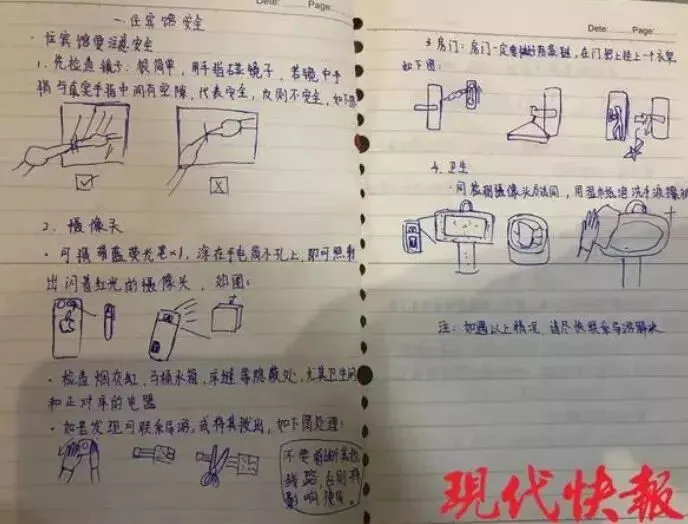 Page:
一.住宾馆安全
· 住宾馆要注意安全
1. 先检查镜子：很简单，用手指碰镜子，若镜中手
指与真实手指中间有空隙，代表安全，反则不安全，如下图
2. 摄像头
· 可携带蓝荧光笔×1，涂在手电筒小孔上，即可照射
出闪着红光的摄像头，如图：
· 检查烟灰缸，马桶水箱，床缝等隐蔽处，尤其卫生间
和正对床的电器
· 如若发现可联系导游，或将其拨出，如下图处理：
不要剪断其他
线路，否则将
影响使用。
Dete: Page:
3 房门：房门一定要，在门把上挂上一个衣架
如下图：
4. 卫生
· 同检摄像头房间，用湿巾纸泡洗手液擦
注：如遇以上情况，请尽快联系导游解决
现代快报